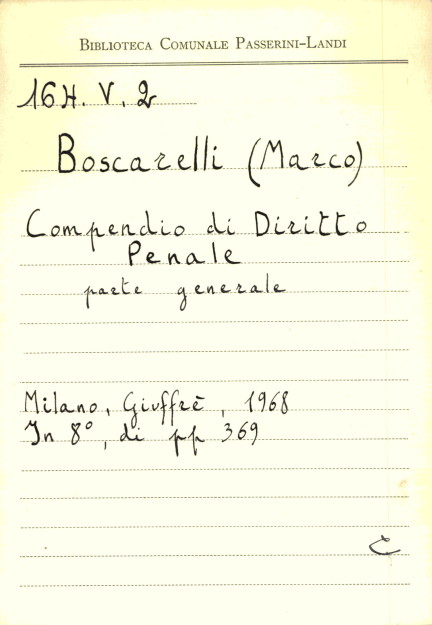 BIBLIOTECA COMUNALE PASSERINI-LANDI
16H. V. 2
Boscarelli (Marco)
Compendio di Diritto
Penale
parte generale
Milano, Giuffrè, 1968
In 8°, di pp 369